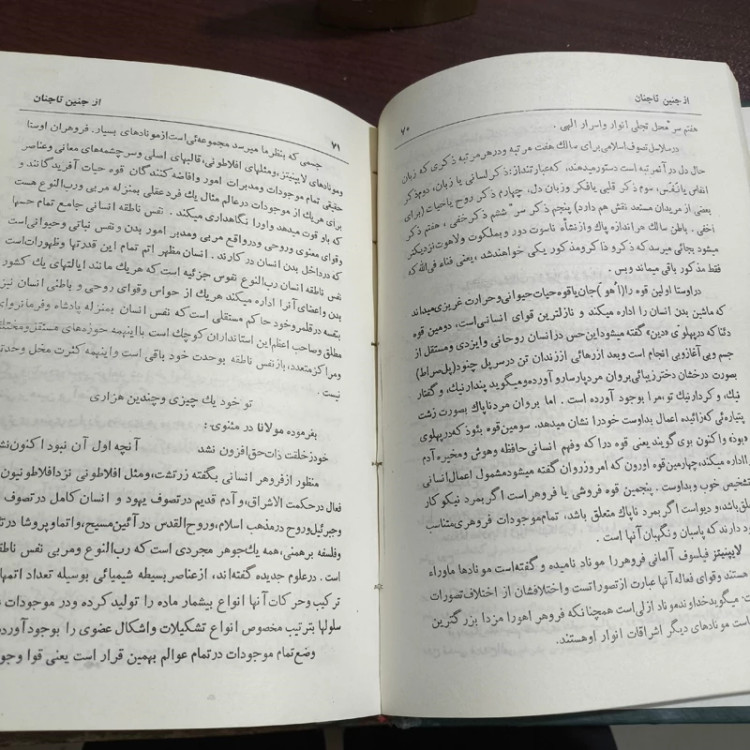 از جنین تاجنان
۷۰
هفتم سرّ محل تجلی انوار واسرار الهی .
درسلاسل تصوف اسلامی برای سالك هفت مرتبه ودرهرمرتبه ذکری که زبان
حال دل در آنمرتبه است دستورمیدهند، که عبارتنداز:ذکرلسانی یا زبان، دوم ذکر
انفاس یا نَفَس، سوم ذکر قلبی یافکر وزبان دل، چهارم ذکر روح یاحیات (برای
بعضی از مریدان مستعد نقش هم دارد) پنجم ذکر سرّ ششم ذکرخفی ، هفتم ذکر
اخفی . باطن سالك هراندازه پاك وازنشأه ناسوت دور وبملکوت ولاهوت نزدیکتر
میشود بجائی میرسد که ذکر و ذاکر ومذکور یکی خواهند شد ، یعنی فناء فی الله که
فقط مذکور باقی میماند وبس .
دراوستا اولین قوه را (اُهو )جان یا قوه حیات حیوانی وحرارت غریزی میداند
که ماشین بدن انسان را اداره میکند و نازلترین قوای انسانی است، دومین قوه
دئنا که درپهلوی «دین» گفته میشود این حس در انسان روحانی وایزدی ومستقل از
جسم وبی آغازوبی انجام است وبعد ازرهائی اززندان تن درسرپل چنود(پل صراط)
بصورت درخشان دخترزیبائی بروان مردپارسا رو آورده ومیگوید پندارنیك، و گفتار
نیك، و کردارنیك تو، مرا بوجود آورده است . اما بروان مردناپاك بصورت زشت
پتیاره ئی که زائیده اعمال بداوست خودرا نشان میدهد. سومین قوه بئوذ که درپهلوی
«بوذ» واکنون بوی گویند یعنی قوه درا که وفهم انسانی حافظه وهوش ومخیره آدم
را اداره میکند، چهارمین قوه اورون که امروز روان گفته میشود مشمول اعمال انسانی
تشخیص خوب وبداوست . پنجمین قوه فروشی یا فروهر است اگر بمرد نیکو کار
باشد، و دیو است اگر بمرد ناپاك متعلق باشد، تمام موجودات فروهری متناسب
خود دارند که پاسبان ونگهبان آنها است .
لایبنیتز فیلسوف آلمانی فروهررا موناد نامیده و گفته است مونادها ماوراء
هستند وقوای فعاله آنها عبارت ازتصوراتست واختلافشان از اختلاف تصورات
میگوید خداوند موناد ازلی است همچنانکه فروهر اهورا مزدا بزرگترین
است مونادهای دیگر اشراقات انوار اوهستند.
از جنین تاجنان
۷۱
جسمی که بنظرما میرسد مجموعه ئی است ازمونادهای بسیار. فروهران اوستا
ومونادهای لایبنیتز، ومثلهای افلاطونی، قالبهای اصلی وسرچشمه های معانی وعناصر
حقیقی تمام موجودات ومدبرات امور وافاضه کنندگان قوه حیات آفریدگانند و
برای هریك از موجودات درعالم مثال یك فردعقلی بمنزله مربی ورب النوع هست
که باو قوت میدهد واورا نگاهداری میکند. نفس ناطقه انسانی جامع تمام حسها
وقوای معنوی وروحی ودرواقع مربی ومدبر امور بدن و نفس نباتی وحیوانی است
که درداخل بدن انسان در کارند . انسان مظهر اتم تمام این قدرتها وظهورات است
نفس ناطقه انسان رب النوع نفوس جزئیه است که هریك مانند ایالتهای یك کشور
بدن واعضای آنرا اداره میکند هریك از حواس وقوای روحی و باطنی انسان نیز
بنفسه درقلمروخود حاکم مستقلی است که نفس انسان بمنزله پادشاه وفرمانروای
مطلق وصاحب اعظم این استانداران کوچك است با اینهمه حوزه های مستقر ومختلف
ومراکزمتعدد، بازنفس ناطقه بوحدت خود باقی است واینهمه کثرت مخل وحدت
نیست .
تو خود یك چیزی وچندین هزاری
بفرموده مولانا در مثنوی :
خودزخلقت ذات حق افزون نشد آنچه اول آن نبود اکنون نشد
منظور ازفروهر انسانی بگفته زرتشت، ومثل افلاطونی نزد افلاطونیون
فعال درحکمت الاشراق، و آدم قدیم درتصوف یهود و انسان کامل در تصوف
وجبرئیل وروح درمذهب اسلام، وروح القدس در آئین مسیح، واتما وپروشا در
وفلسفه برهمنی، همه یك جوهر مجردی است که رب النوع ومربی نفس ناطقه
است . درعلوم جدیده گفته اند، ازعناصر بسیطه شیمیائی بوسیله تعداد اتمها
ترکیب وحرکات آنها انواع بیشمار ماده را تولید کرده ودر موجودات
سلولها بترتیب مخصوص انواع تشکیلات واشکال عضوی را بوجود آورده
وضع تمام موجودات در تمام عوالم بهمین قرار است یعنی قوا